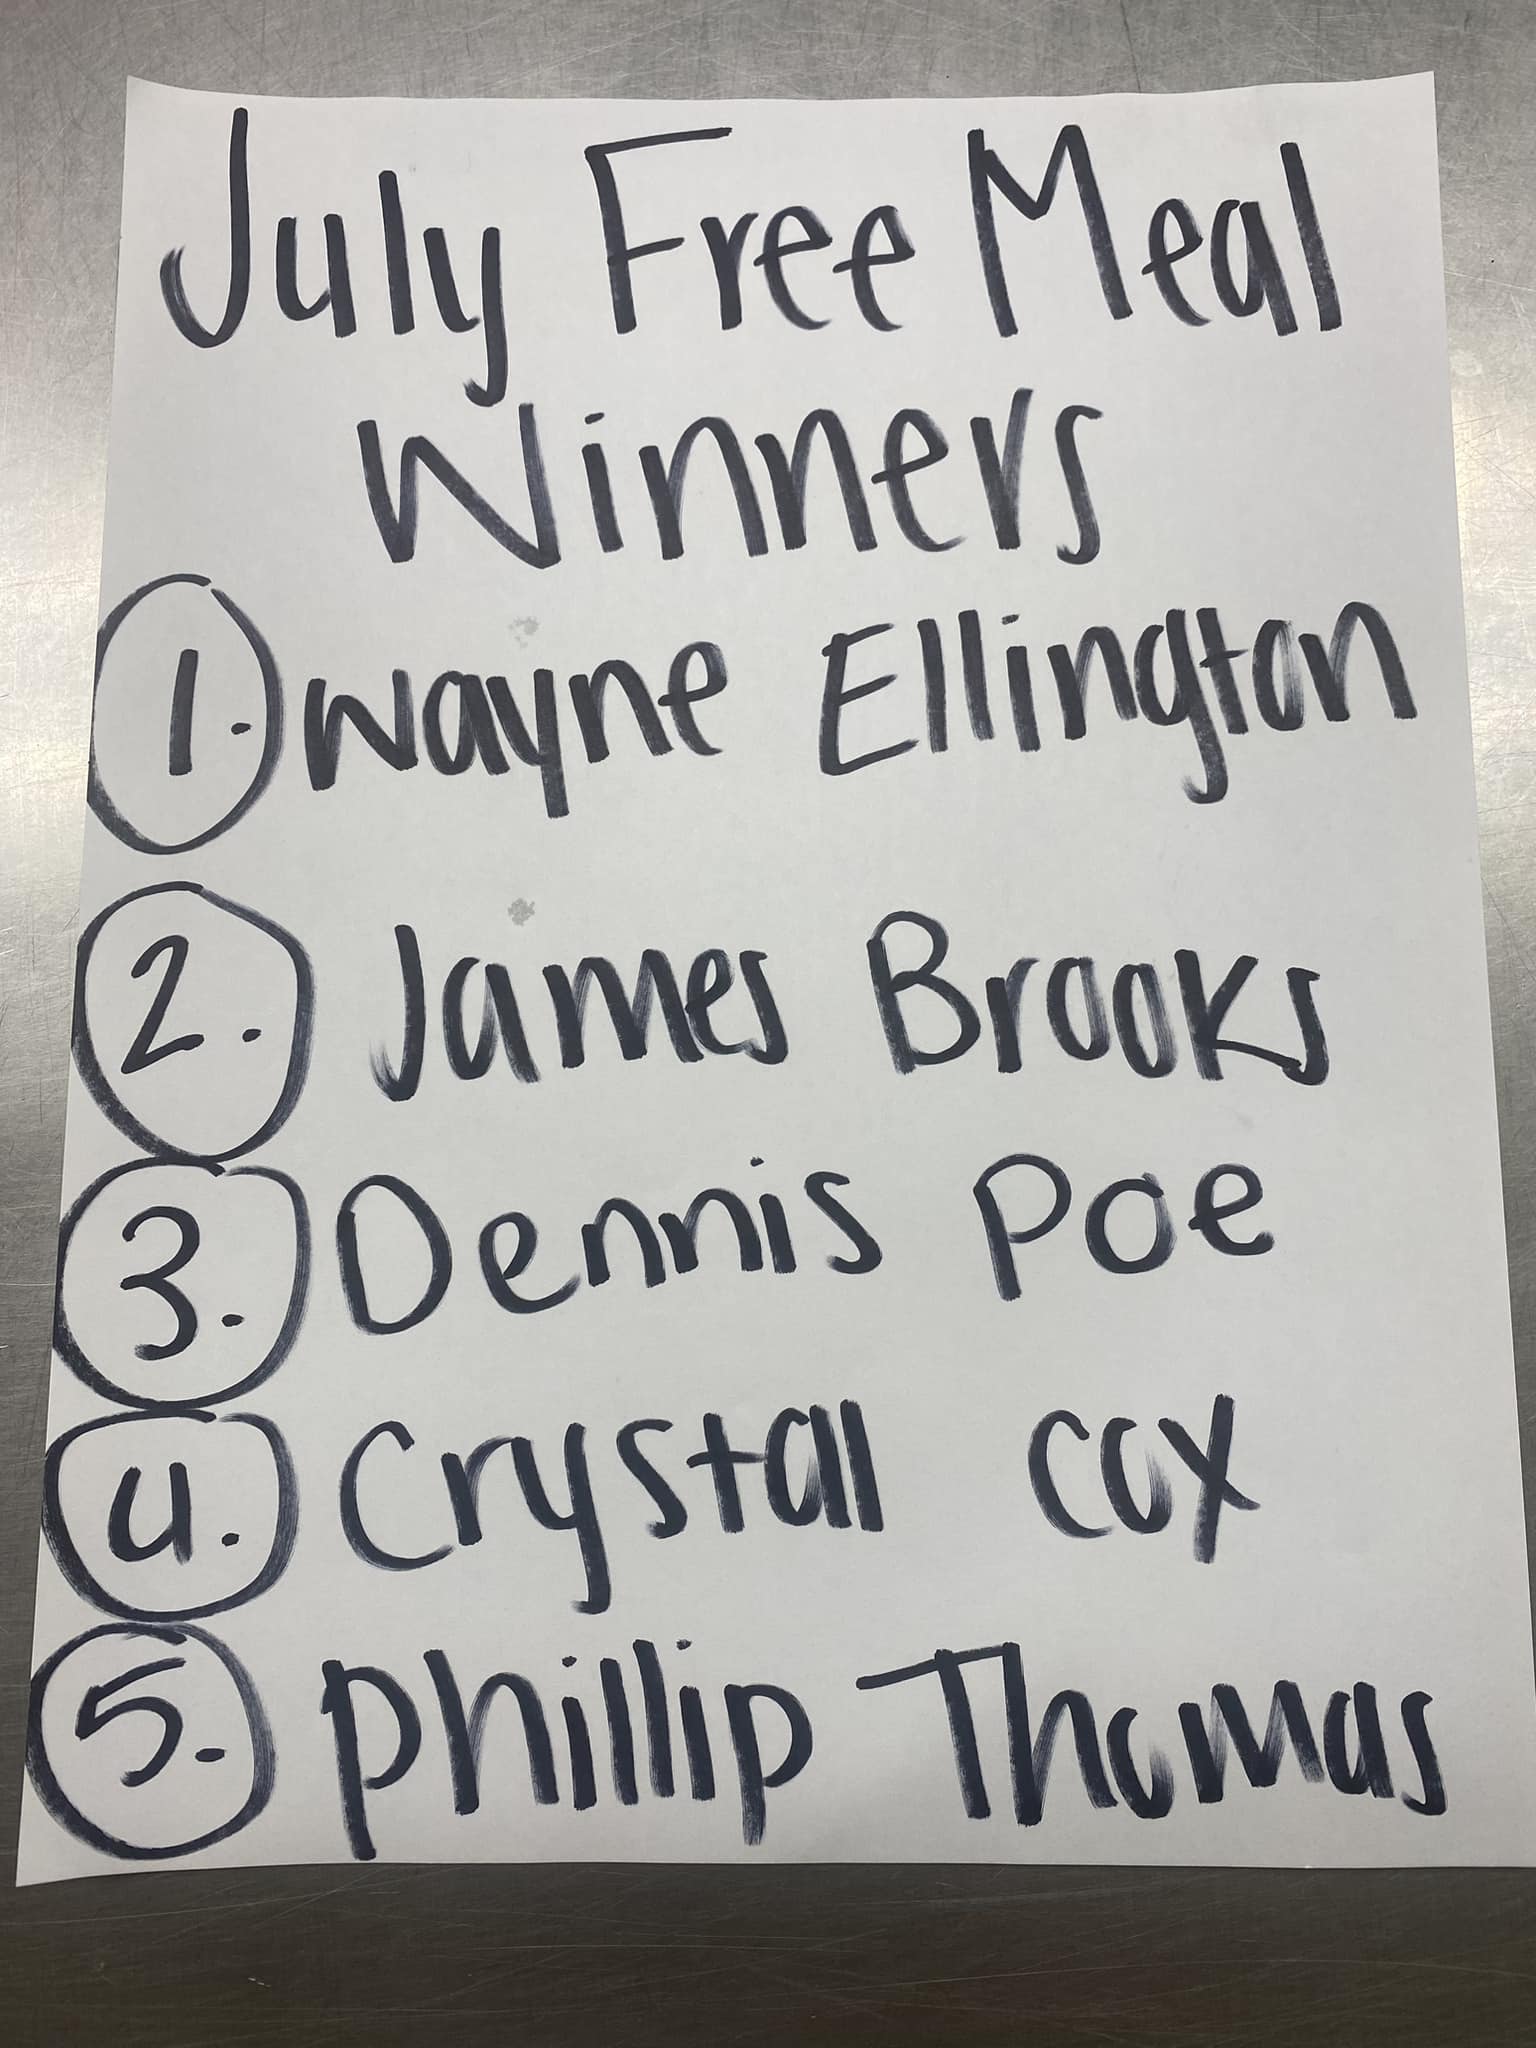 July Free Meal
Winners
1. Wayne Ellington
2. James Brooks
3. Dennis Poe
4. Crystal Cox
5. Phillip Thomas